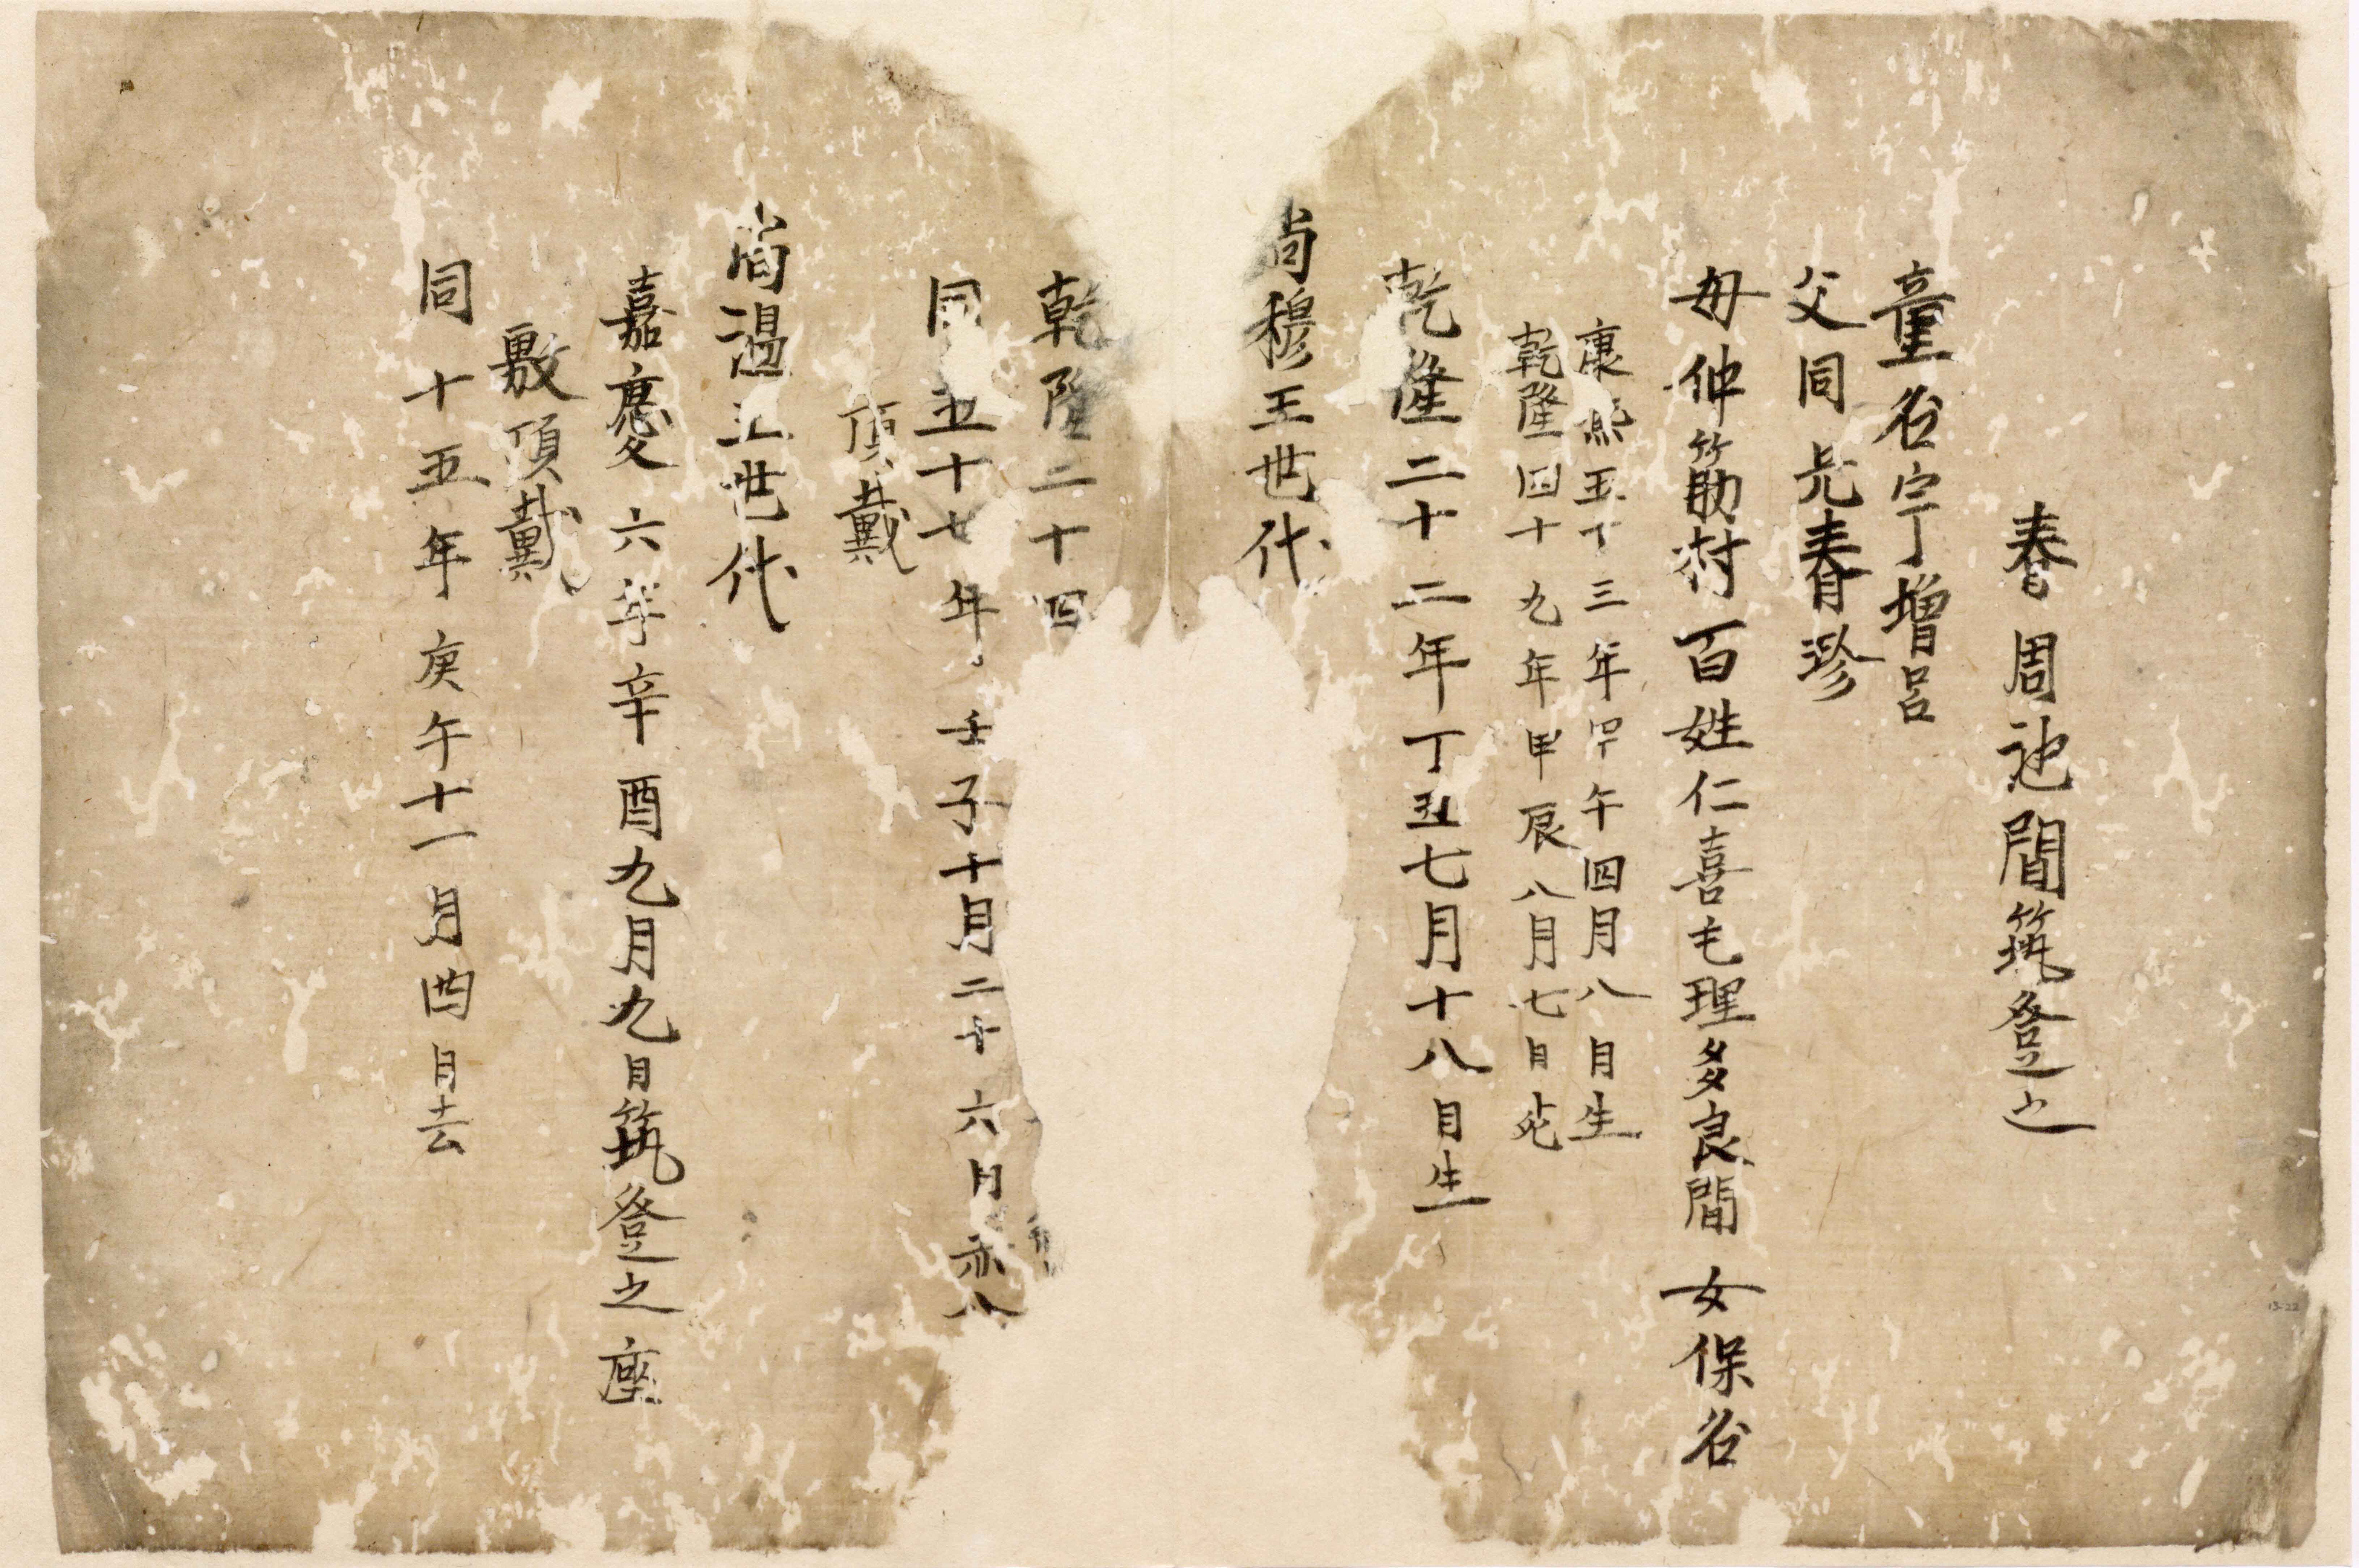 春周池間筑登之
童名宇增呂
父同元春瀏
母仲筋村百姓仁喜也理多良間女保谷
康熙五十三年甲午四月八日生
乾隆四十九年甲辰八月七日死
乾隆二十二年丁丑七月十八日生
尚穆王世代
乾隆二十四
同五十七年壬子十月二十六日赤八
頂戴
尚溫王世代
嘉慶六年辛酉九月九日筑登之座
敷頂戴
同十五年庚午十一月四日去